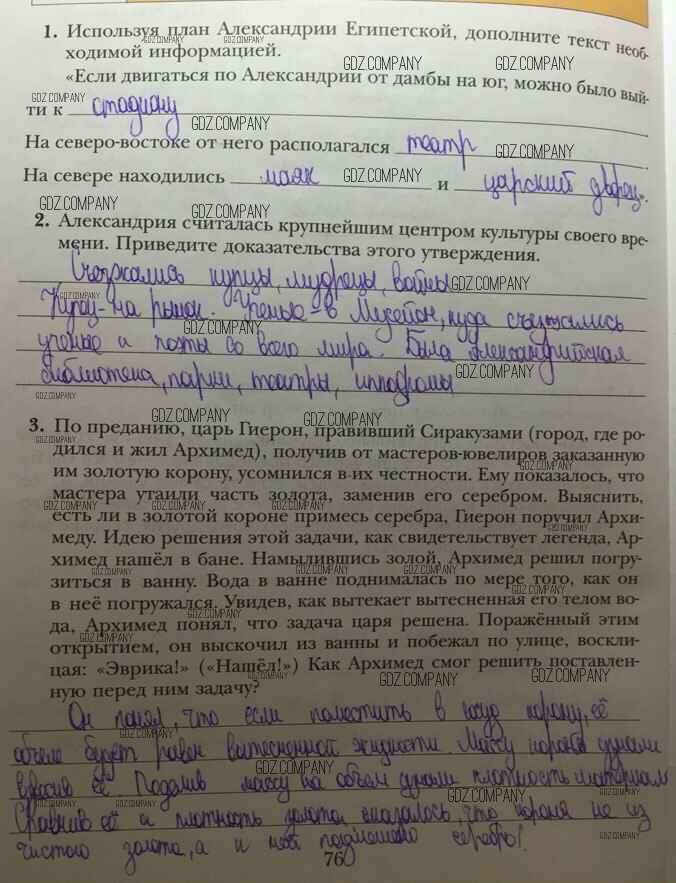 1. Используя план Александрии Египетской, дополните текст необ-
ходимой информацией.
«Если двигаться по Александрии от дамбы на юг, можно было вый-
ти к стадиону.
На северо-востоке от него располагался театр.
На севере находились маяк и царский дворец».
2. Александрия считалась крупнейшим центром культуры своего вре-
мени. Приведите доказательства этого утверждения.
Съезжались купцы, мудрецы, войны
Купцы - на рынок. Ученые - в Мусейон, куда съезжались
ученые и поэты со всего мира. Была Александрийская
библиотека, парки, театры, ипподромы
3. По преданию, царь Гиерон, правивший Сиракузами (город, где ро-
дился и жил Архимед), получив от мастеров-ювелиров заказанную
им золотую корону, усомнился в их честности. Ему показалось, что
мастера утаили часть золота, заменив его серебром. Выяснить,
есть ли в золотой короне примесь серебра, Гиерон поручил Архи-
меду. Идею решения этой задачи, как свидетельствует легенда, Ар-
химед нашёл в бане. Намылившись золой, Архимед решил погру-
зиться в ванну. Вода в ванне поднималась по мере того, как он
в неё погружался. Увидев, как вытекает вытесненная его телом во-
да, Архимед понял, что задача царя решена. Поражённый этим
открытием, он выскочил из ванны и побежал по улице, воскли-
цая: «Эврика!» («Нашёл!») Как Архимед смог решить поставлен-
ную перед ним задачу?
Он понял, что если поместить в воду корону, её
объем будет равен вытесненной жидкости. Массу короны узнали
взвесив её. Поделив массу на объем узнали плотность материала
Сравнив её и плотность золота оказалось, что корона не из
чистого золота, а к ней подмешано серебро!
76
GDZ.COMPANY